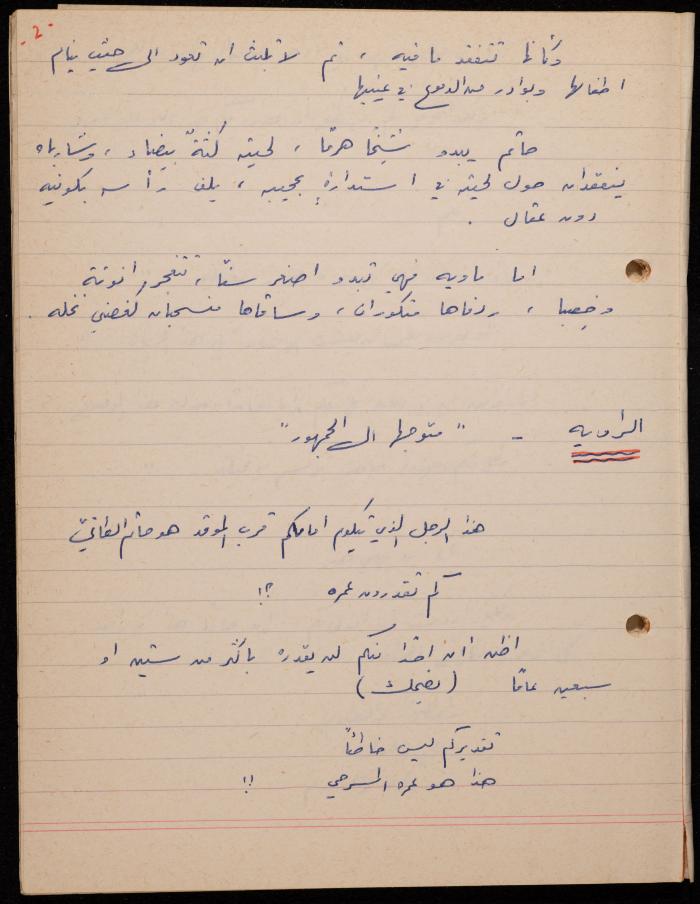 - 2 -
وكأنها تتفقد ما فيه ، ثم لا تلبث ان تعود الى حيث ينام
اطفالها وبوادر من الدموع في عينيها
حاتم يبدو شيخا هرمًا ، لحيته كثةٌ بيضاء ، وشارباه
ينعقدان حول لحيته في استدارةٍ عجيبه ، يلف رأسه بكوفيه
دون عقال .
اما ماويه فهي تبدو اصغر سنًا ، تتفجر انوثة
وخصبا ، ردفاها متكوران ، وساقاها منسحبان كغصني نخله .
الراويه - " متوجها الى الجمهور "
هذا الرجل الذي يتكوم امامكم قرب الموقد هو حاتم الطائيّ
كم تقدرون عمره ؟!
اظن ان احدا منكم لن يقدره باكثر من ستين او
سبعين عامًا ( يضحك )
تقديركم ليس خاطئاً
هذا هو عمره المسرحي !!